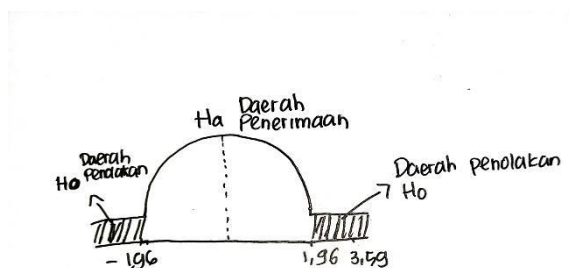 Ha Daerah Penerimaan
Daerah penolakan
Ho
Daerah penolakan
Ho
-1,96
1,96 3,59